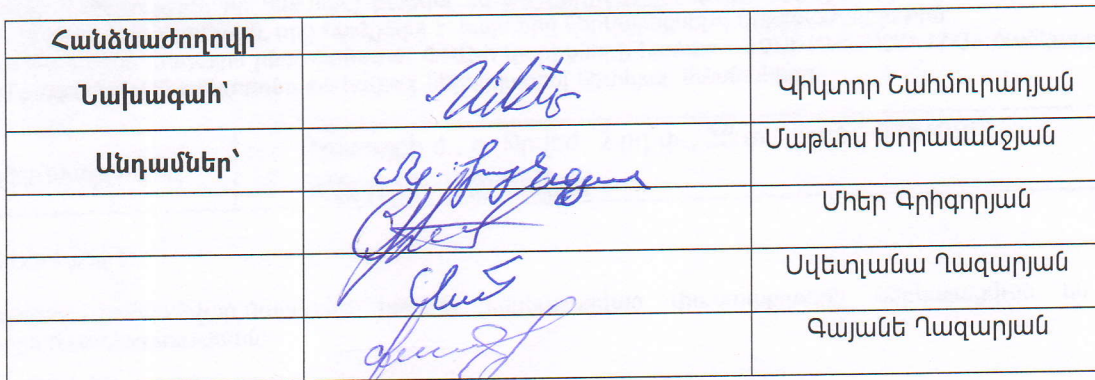 Հանձնաժողովի
Նախագահ՝ Վիկտոր Շահմուրադյան
Անդամներ՝ Մաթևոս Խորասանջյան
Մհեր Գրիգորյան
Սվետլանա Ղազարյան
Գայանե Ղազարյան